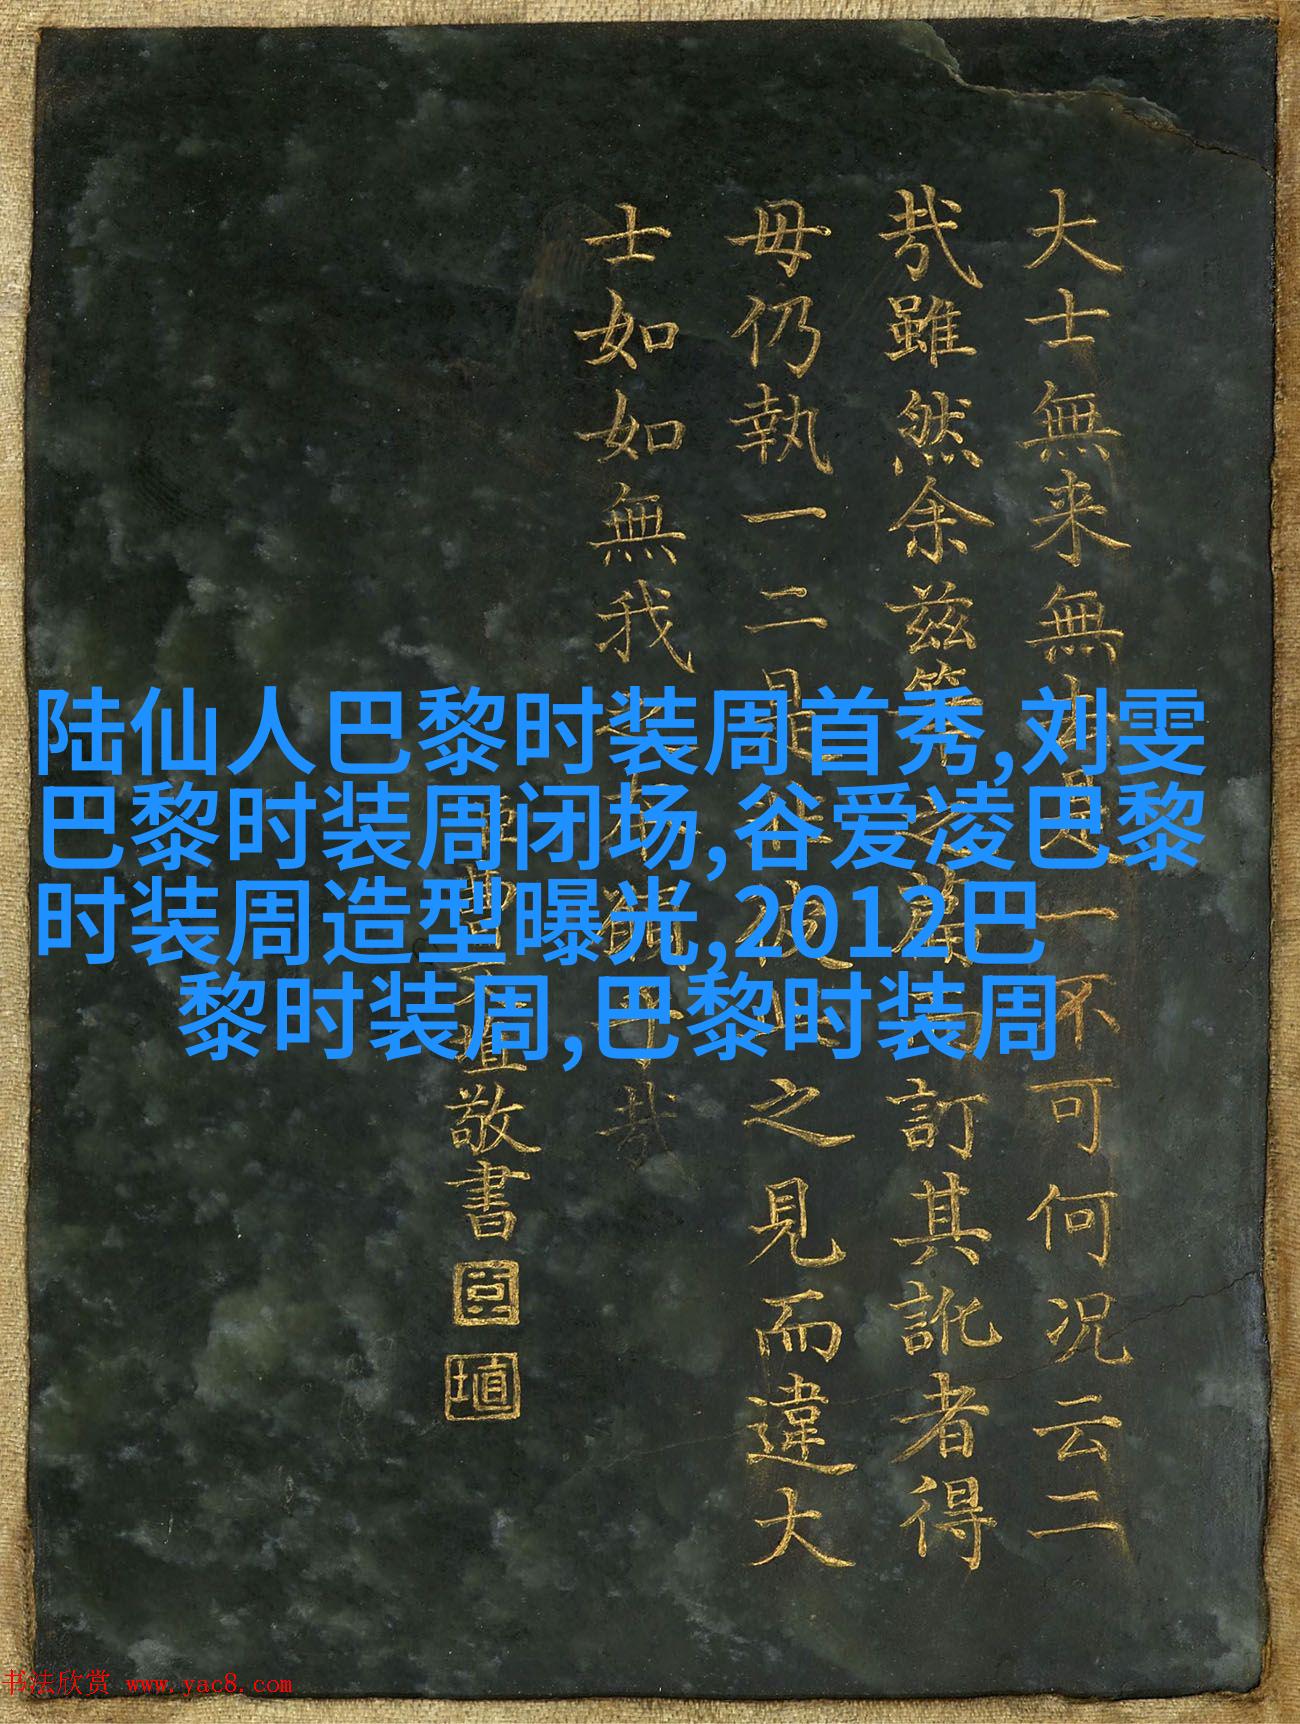 大士無来無一不可何况云二
哉雖然余兹訂其訛者得
毋仍執一二是之見而違大
士如如無我哉
敬書
陆仙人巴黎时装周首秀,刘雯
巴黎时装周闭场,谷爱凌巴黎
时装周造型曝光,2012巴
黎时装周,巴黎时装周
书法欣赏 www.yac8.com